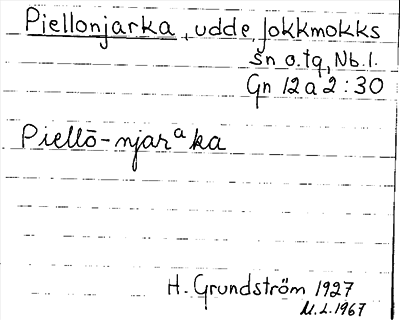 Piellonjarka, udde, Jokkmokks
sn o. tg, Nb. l.
Gn 12 a 2 : 30
Piellō-njarᵃka
H. Grundström 1927
M.L. 1967